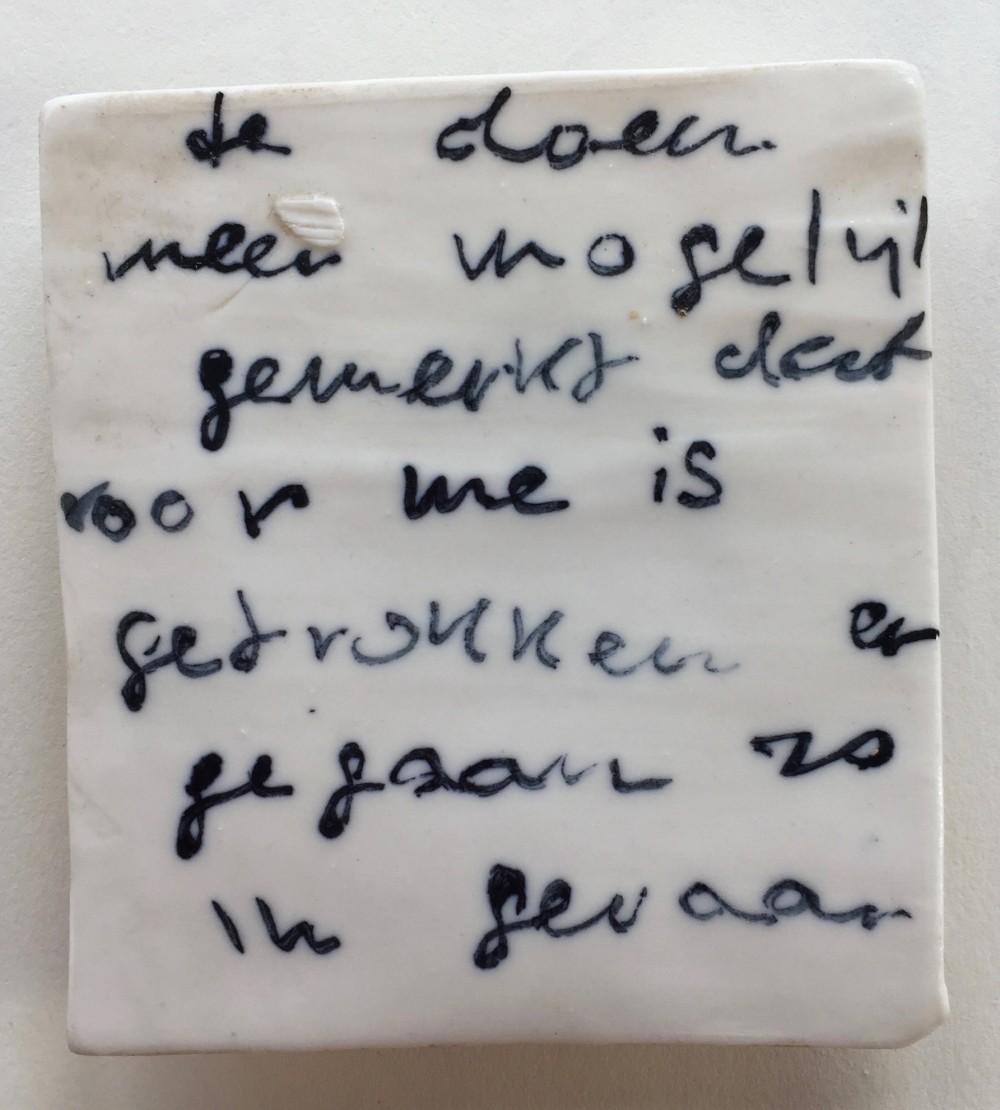 te doen
meer mogelijk
gemerkt dat
voor me is
getrokken en
gegaan zo
in gevaar